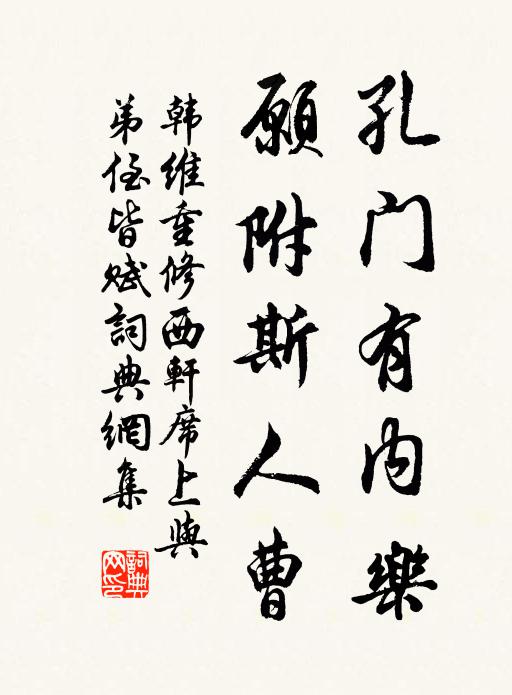 孔门有内樂
願附斯人曹
韩維重修西軒席上與
弟侄皆赋詞典網集
詞典網印